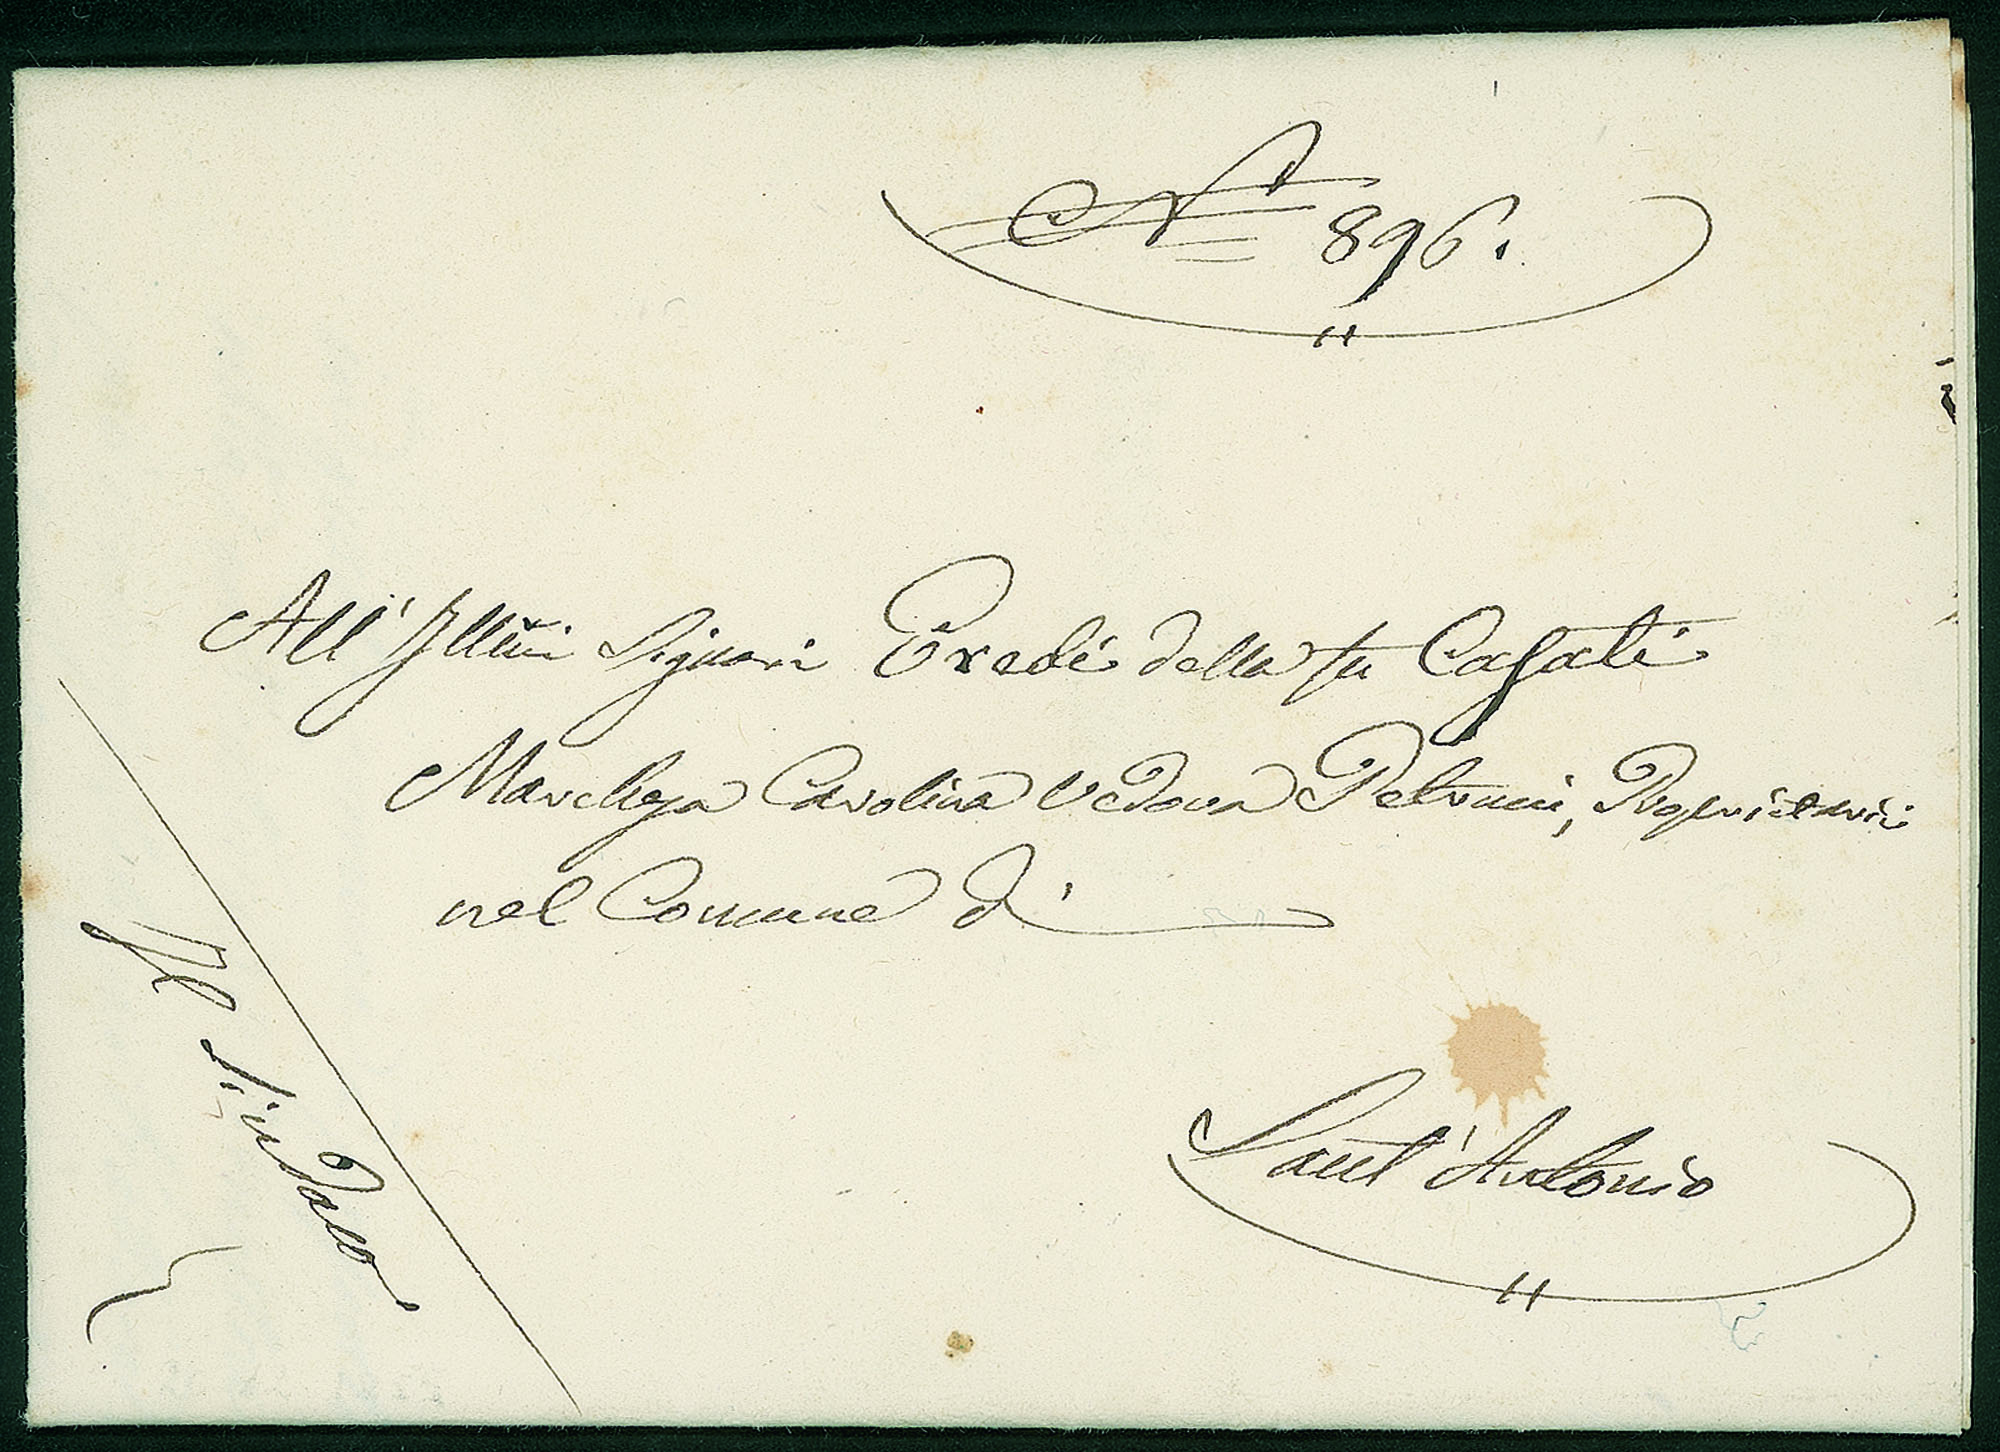 N° 896.
All' Illmi Signori Eredi della fu Casati
Marchesa Carolina Vedova Petrucci, Proprietarii
nel Comune di
Sant'Antonio
Il Sindaco